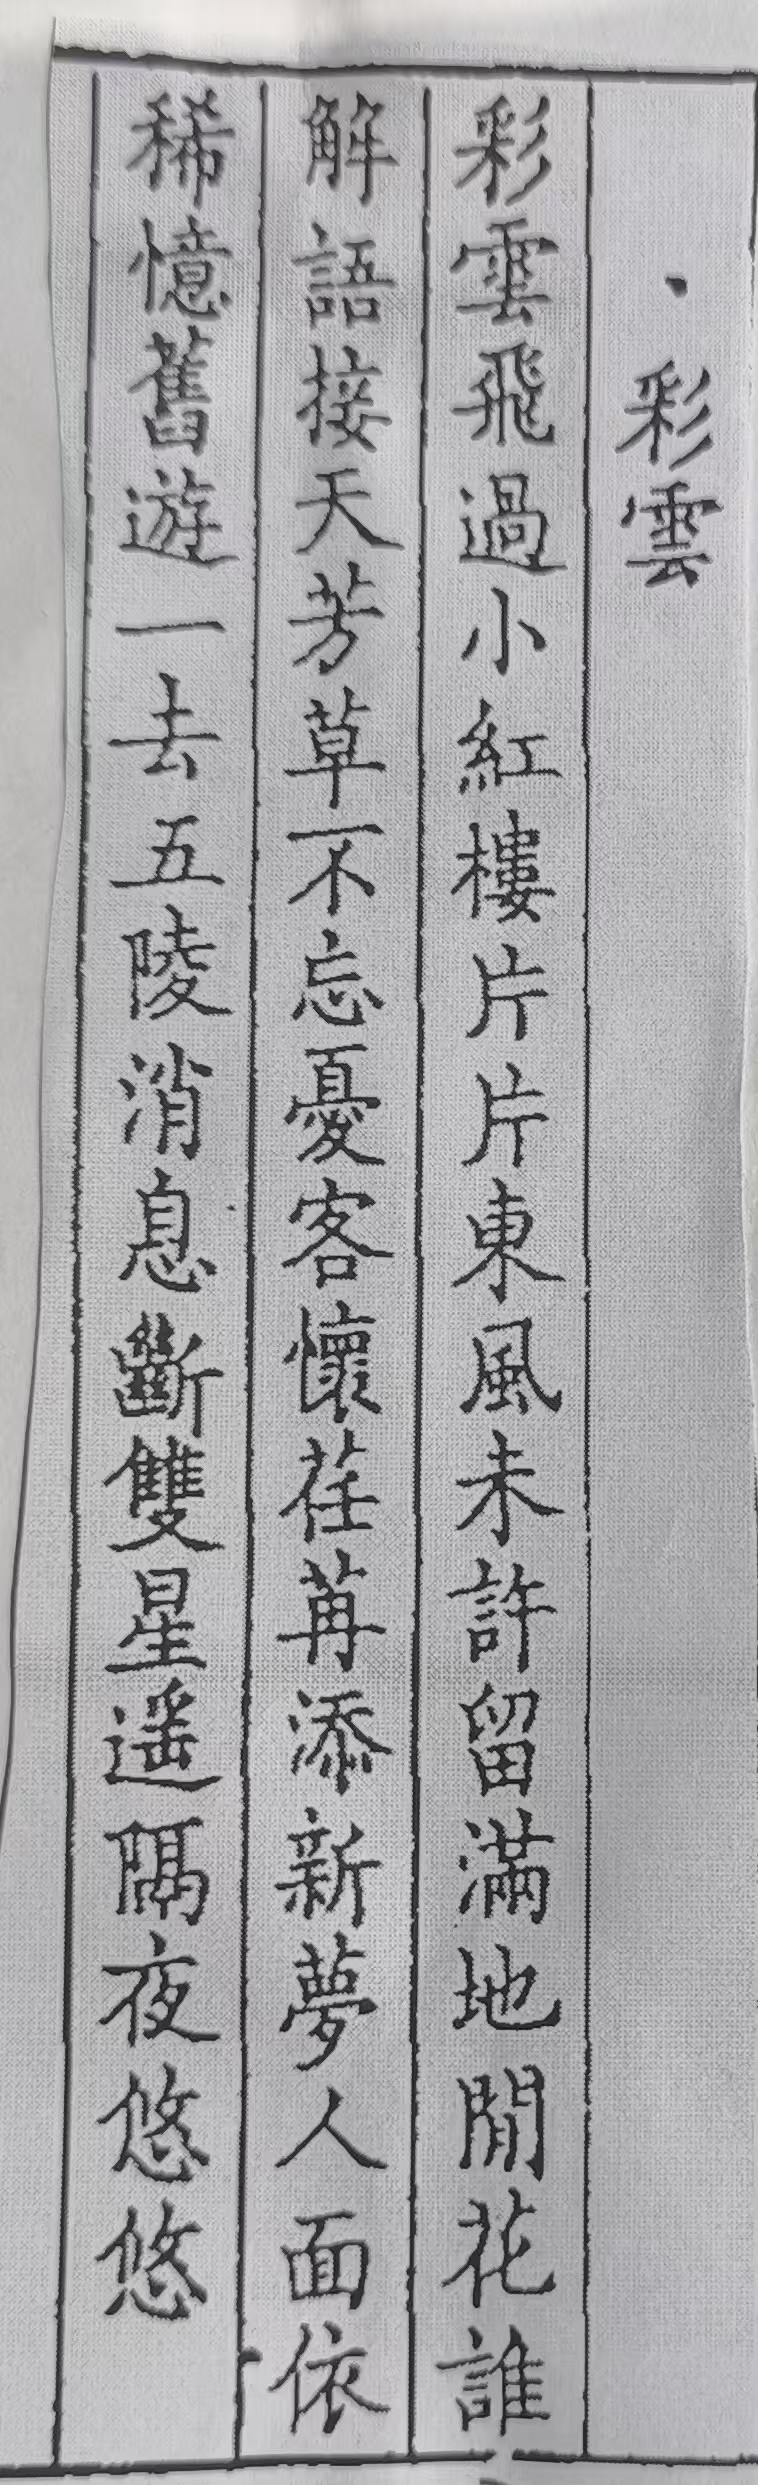 ·彩雲
彩雲飛過小紅樓片片東風未許留滿地閒花誰
解語接天芳草不忘憂客懷荏苒添新夢人面依
稀憶舊遊一去五陵消息斷雙星遥隔夜悠悠